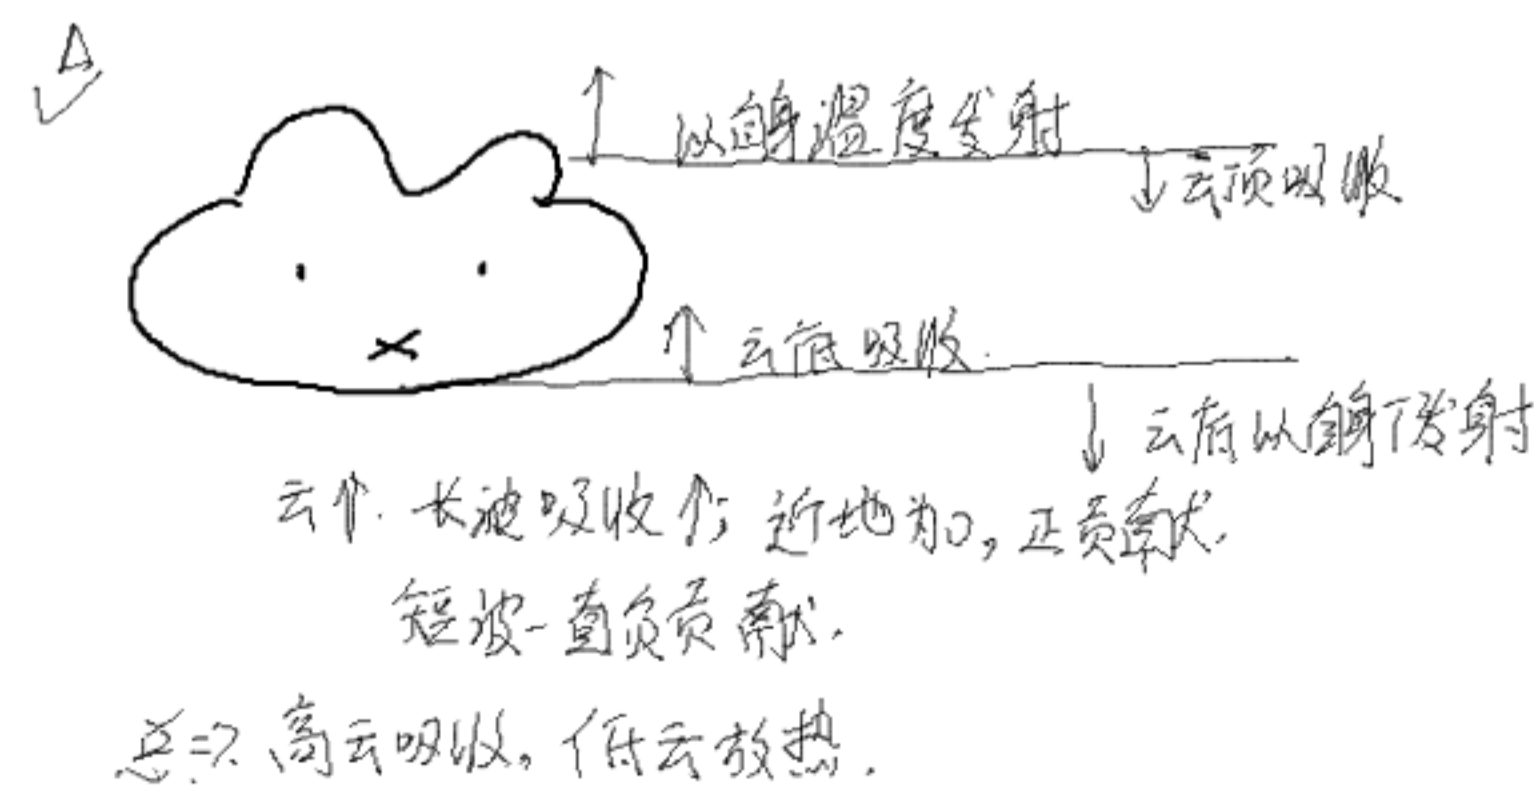 以自身温度发射
云顶吸收
云底吸收.
云底以自身T发射
云↑. 长波吸收↑; 近地为0, 正贡献.
短波一直负贡献.
总=>. 高云吸收, 低云放热.